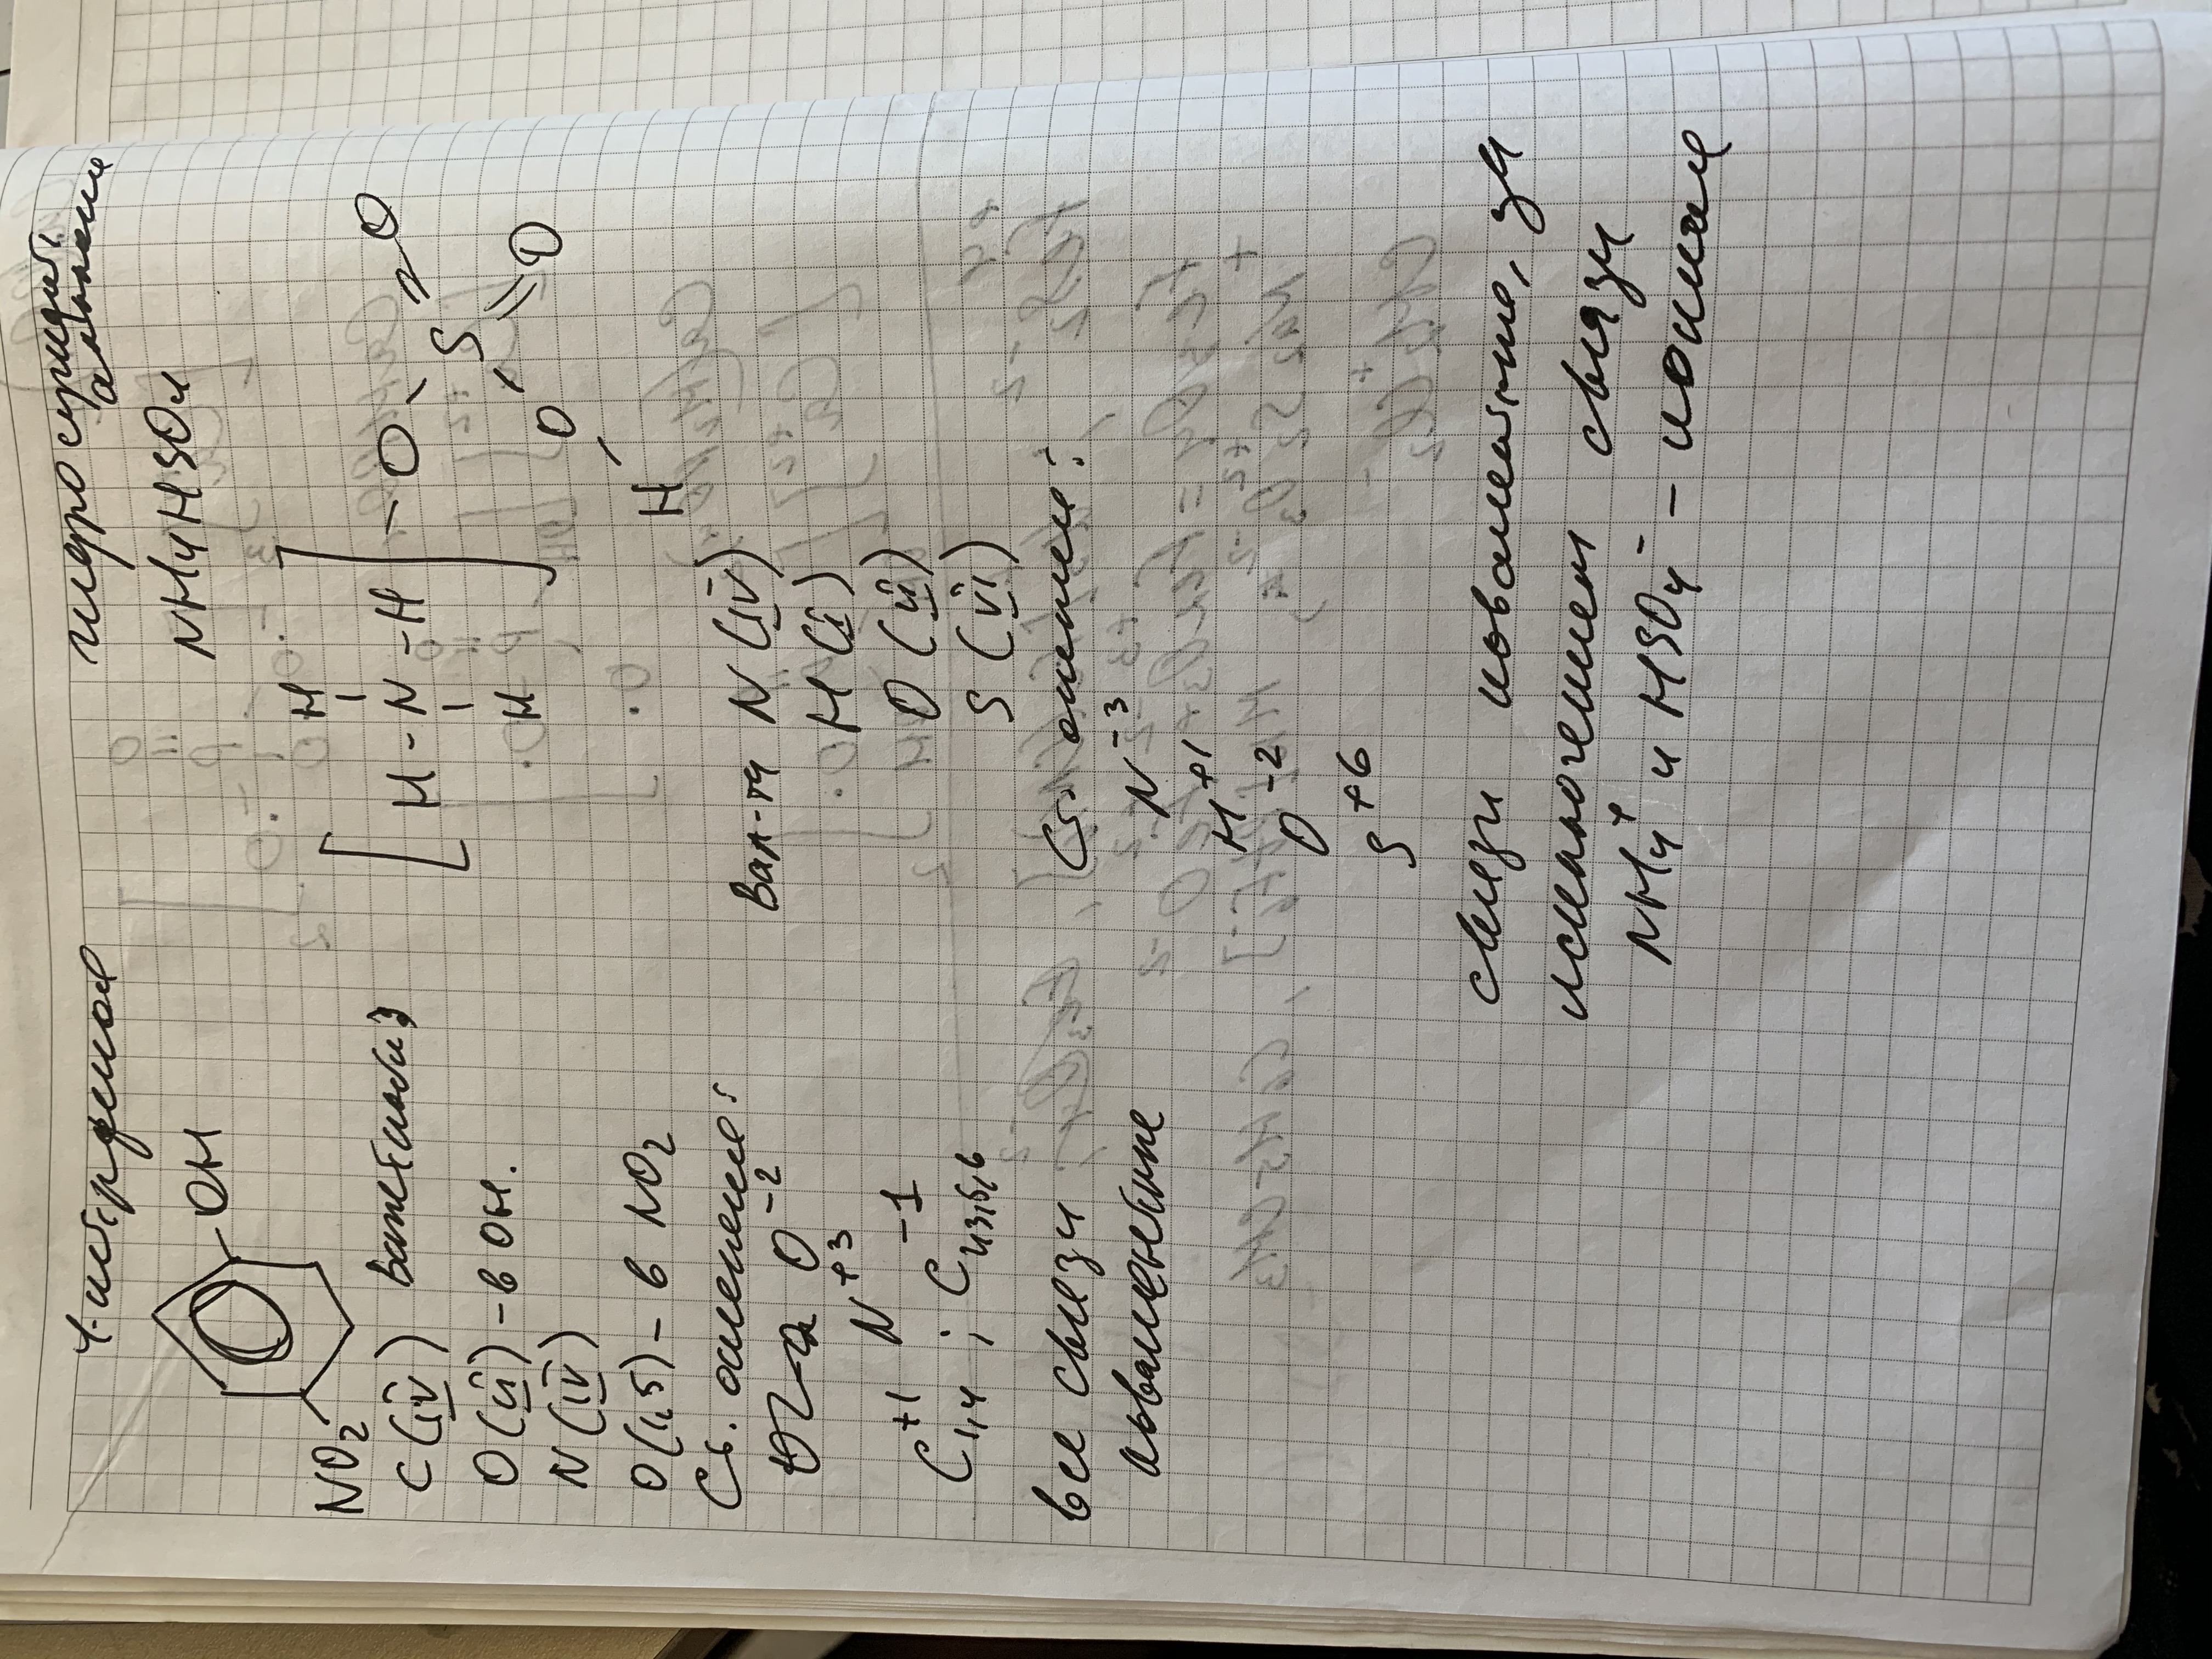 4-нитрофенол
OH
NO2
C (IV) Валентности
O (II) - в OH.
N (IV)
O (1,5) - в NO2
Ст. окисления:
O-2
N+3
C+1 1,4 ; C-1 2,3,5,6
все связи
ковалентные
гидросульфат
аммония
NH4HSO4
H
[ H - N - H ] - O O
S
H
O O
H
Вал-ти N (IV)
H (I)
O (II)
S (VI)
Ст. окисления:
N-3
H+1
O-2
S+6
связи ковалентные, за
исключением связи
NH4+ и HSO4- - ионная